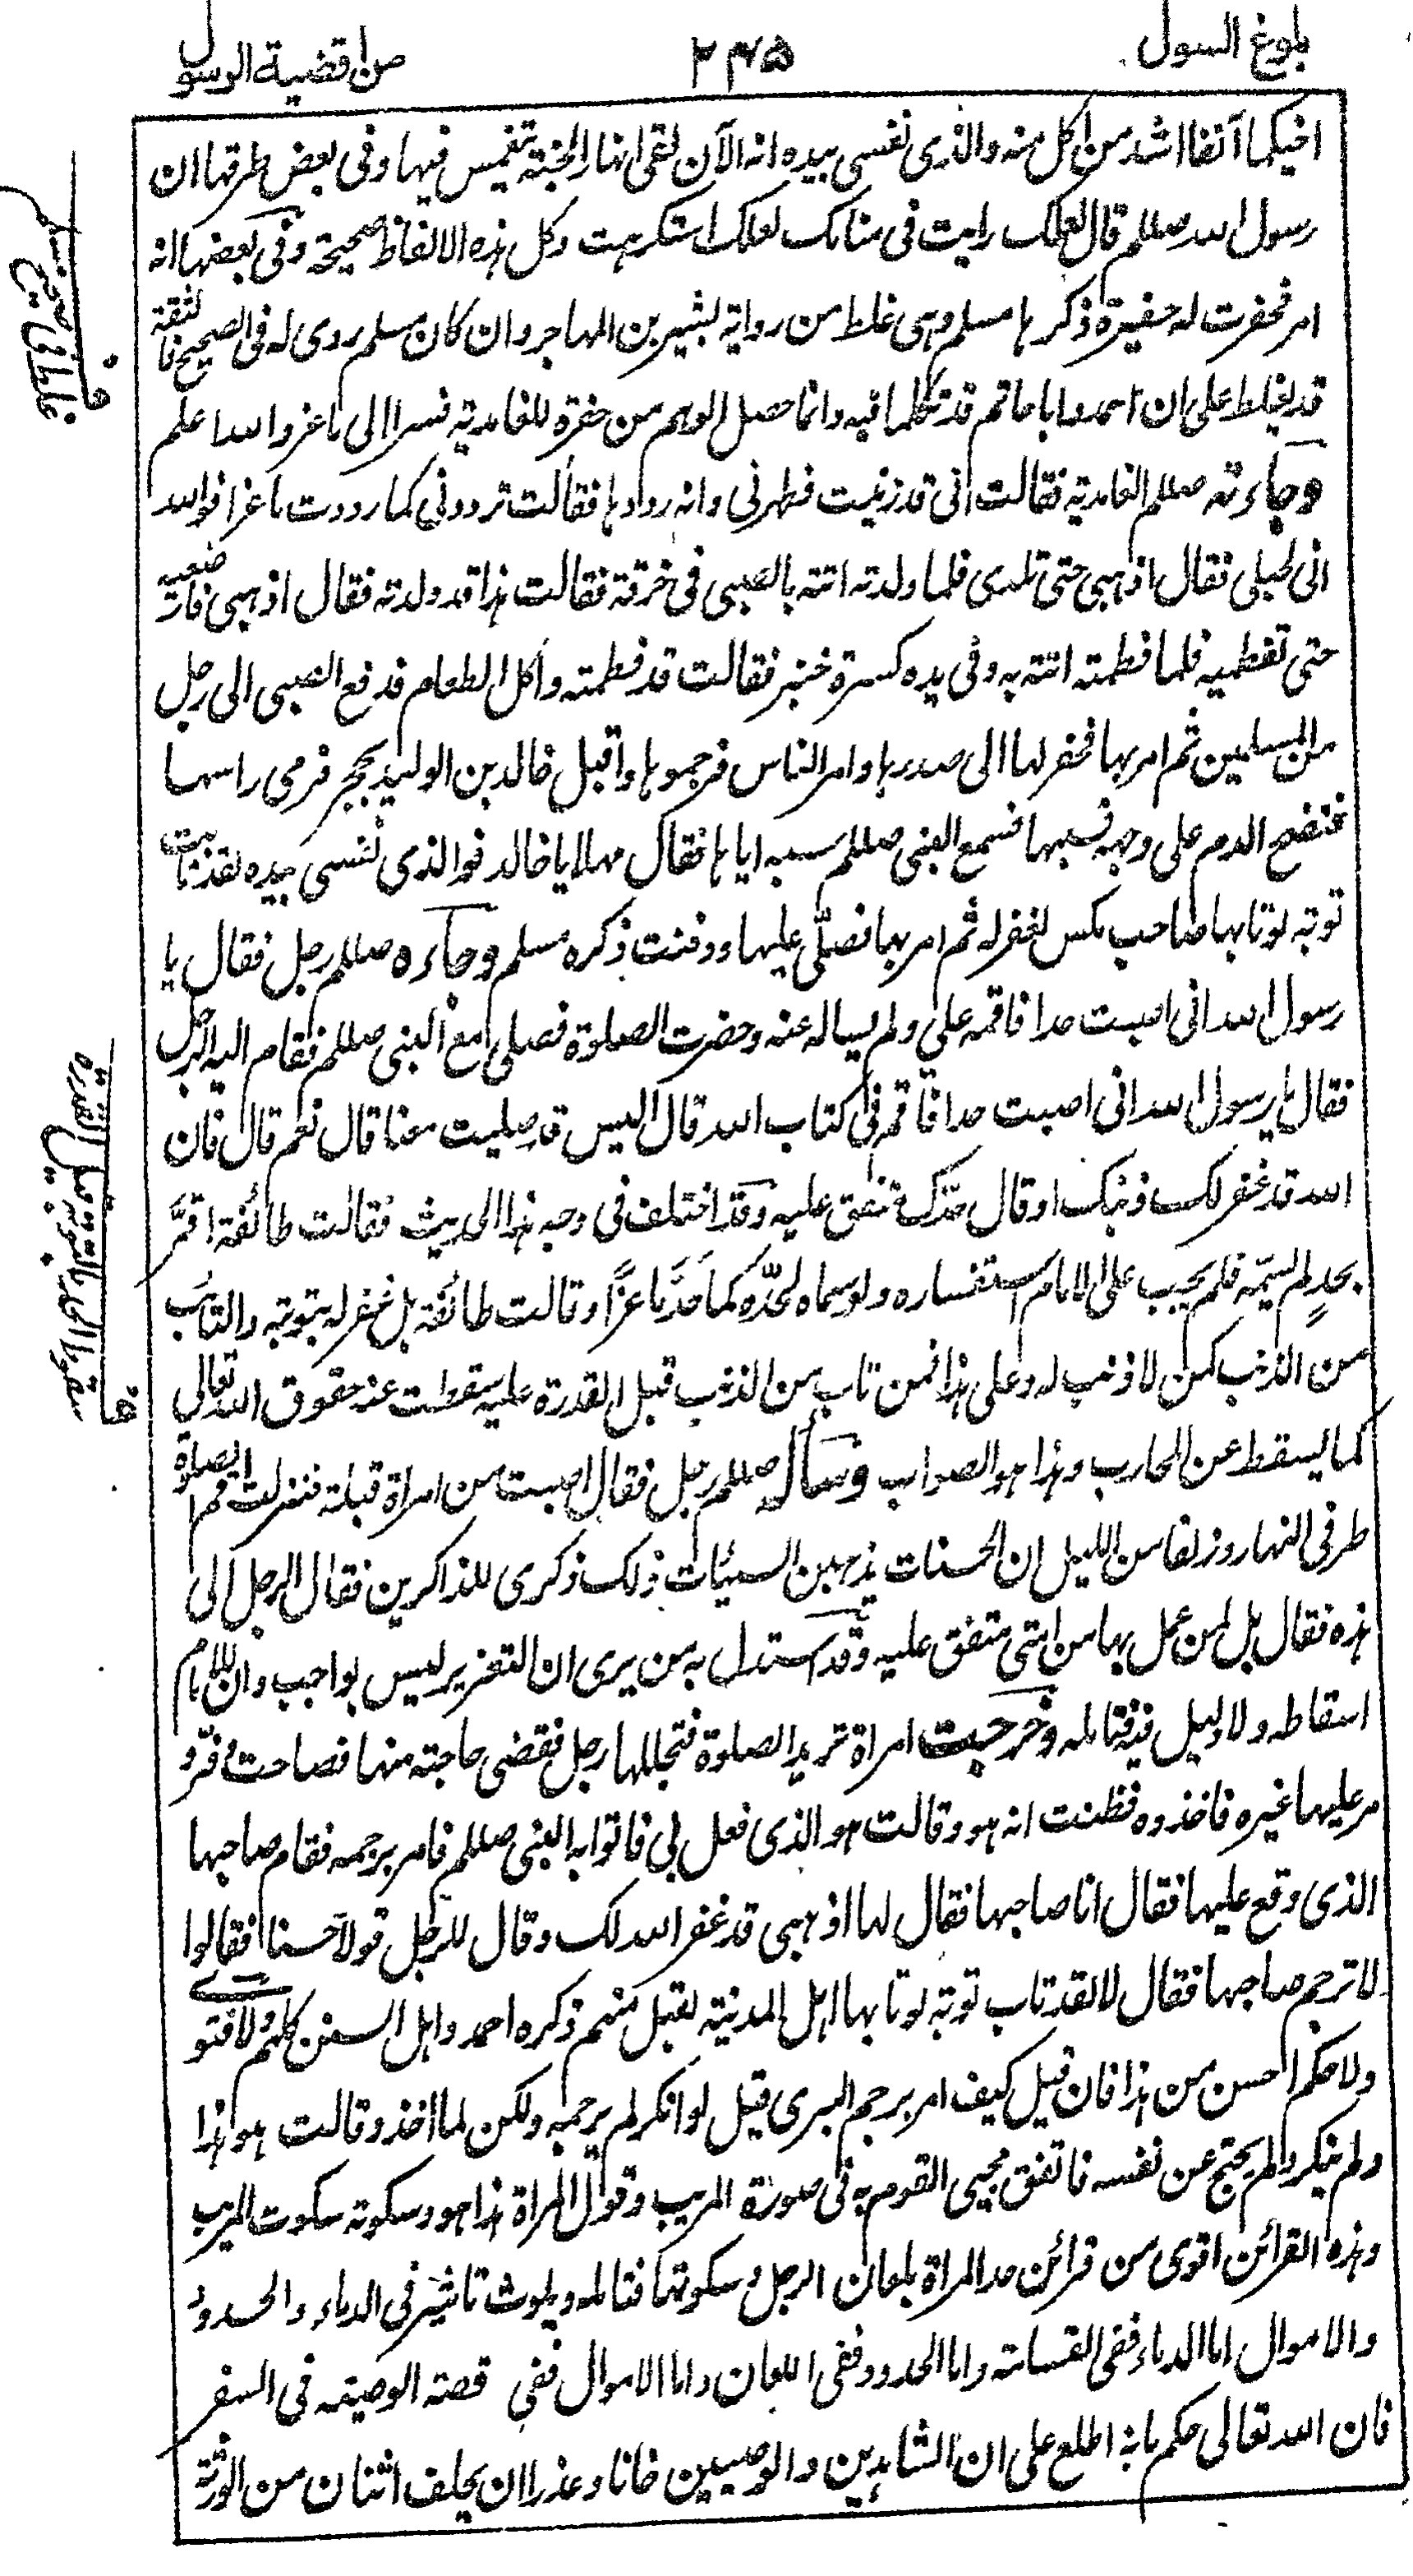 بلوغ السول
٢٣٥
من اقضية الرسول
اخيكما آنفا اشد من اكل منه والذى نفسى بيده انه الآن لفى انهار الجنة تنغمس فيها وفى بعض طرقها ان
رسول الله صللم قال لعلك رايت فى منامك لعلك استكرهت وكل هذه الالفاظ صحيحة وفى بعضها انه
امر فحفرت له حفيرة ذكرها مسلم وهى غلط من رواية بشير بن المهاجر وان كان مسلم روى له فى الصحيح فالثقة
قد يغلط على ان احمد وابا حاتم قد تكلما فيه وانما حصل الوهم من حفرة للغامدية فسرا الى ماعز والله اعلم
وجاءته صللم الغامدية فقالت انى قد زنيت فطهرنى وانه ردادها فقالت تردونى كما رددت ماعزا فوالله
انى لحبلى فقال اذهبى حتى تلدى فلما ولدته اتته بالصبى فى خرقة فقالت هذا قد ولدته فقال اذهبى فارضعيه
حتى تفطميه فلما فطمته اتته به وفى يده كسرة خبز فقالت قد فطمته واكل الطعام فدفع الصبى الى رجل
من المسلمين ثم امر بها فحفر لها الى صدرها وامر الناس فرجموها واقبل خالد بن الوليد بحجر فرمى راسها
فتنضح الدم على وجهه فسبها فسمع النبى صللم سبه اياها فقال مهلا يا خالد فوالذى نفسى بيده لقد تابت
توبة لو تابها صاحب مكس لغفر له ثم امر بها فصلّى عليها ودفنت ذكره مسلم وجاءه صللم رجل فقال يا
رسول الله انى اصبت حدا فاقمه على ولم يساله عنه وحضرت الصلوة فصلى مع النبى صللم فقام اليه الرجل
فقال يا رسول الله انى اصبت حدا فاقم فى كتاب الله قال اليس قد صليت معنا قال نعم قال فان
الله قد غفر لك ذنبك او قال حدك متفق عليه وقد اختلف فى وجه هذا الحديث فقالت طائفة اقرّ
بحدٍ لم يسمّه فلم يجب على الامام استفساره ولو سماه لحدّه كما حدّ ماعزًا وقالت طائفة بل غفر له بتوبته والتائب
من الذنب كمن لا ذنب له وعلى هذا فمن تاب من الذنب قبل القدرة عليه سقطت عنه حقوق الله تعالى
كما يسقط عن المحارب وهذا هو الصواب وسأل صللم رجل فقال اصبت من امراة قبلة فنزلت اقم الصلوة
طرفى النهار وزلفا من الليل ان الحسنات يذهبن السيئات ذلك ذكرى للذاكرين فقال الرجل الى
هذه فقال بل لمن عمل بها من امتى متفق عليه وقد استدل به من يرى ان التعزير ليس بواجب وان للامام
اسقاطه ولا دليل فيه فتامله وخرجت امراة تريد الصلوة فتجللها رجل فقضى حاجته منها فصاحت وفرّ و
مر عليها غيره فاخذوه فظنت انه هو وقالت هو الذى فعل بى فاتوا به النبى صللم فامر برجمه فقام صاحبها
الذى وقع عليها فقال انا صاحبها فقال لها اذهبى قد غفر الله لك وقال للرجل قولا حسنا فقالوا
لا ترجم صاحبها فقال لا لقد تاب توبة لو تابها اهل المدينة لقبل منهم ذكره احمد واهل السنن كلهم ولا فتوے
ولا حكم احسن من هذا فان قيل كيف امر برجم البرى قيل لو انكر لم يرجمه ولكن لما اخذ وقالت هو هذا
ولم ينكر ولم يحتج عن نفسه فاتفق مجيى القوم به فى صورة المريب وقول المراة هذا هو وسكوته سكوت المريب
وهذه القرائن اقوى من قرائن حد المراة بلعان الرجل وسكوتها فتامله ويلوث تاثير فى الدماء والحدود
والاموال اما الدماء ففى القسامة واما الحدود ففى اللعان واما الاموال ففى قصة الوصية فى السفر
فان الله تعالى حكم بانه اطلع على ان الشاهدين والوصيين خانا وعذرا ان يحلف اثنان من الورثة